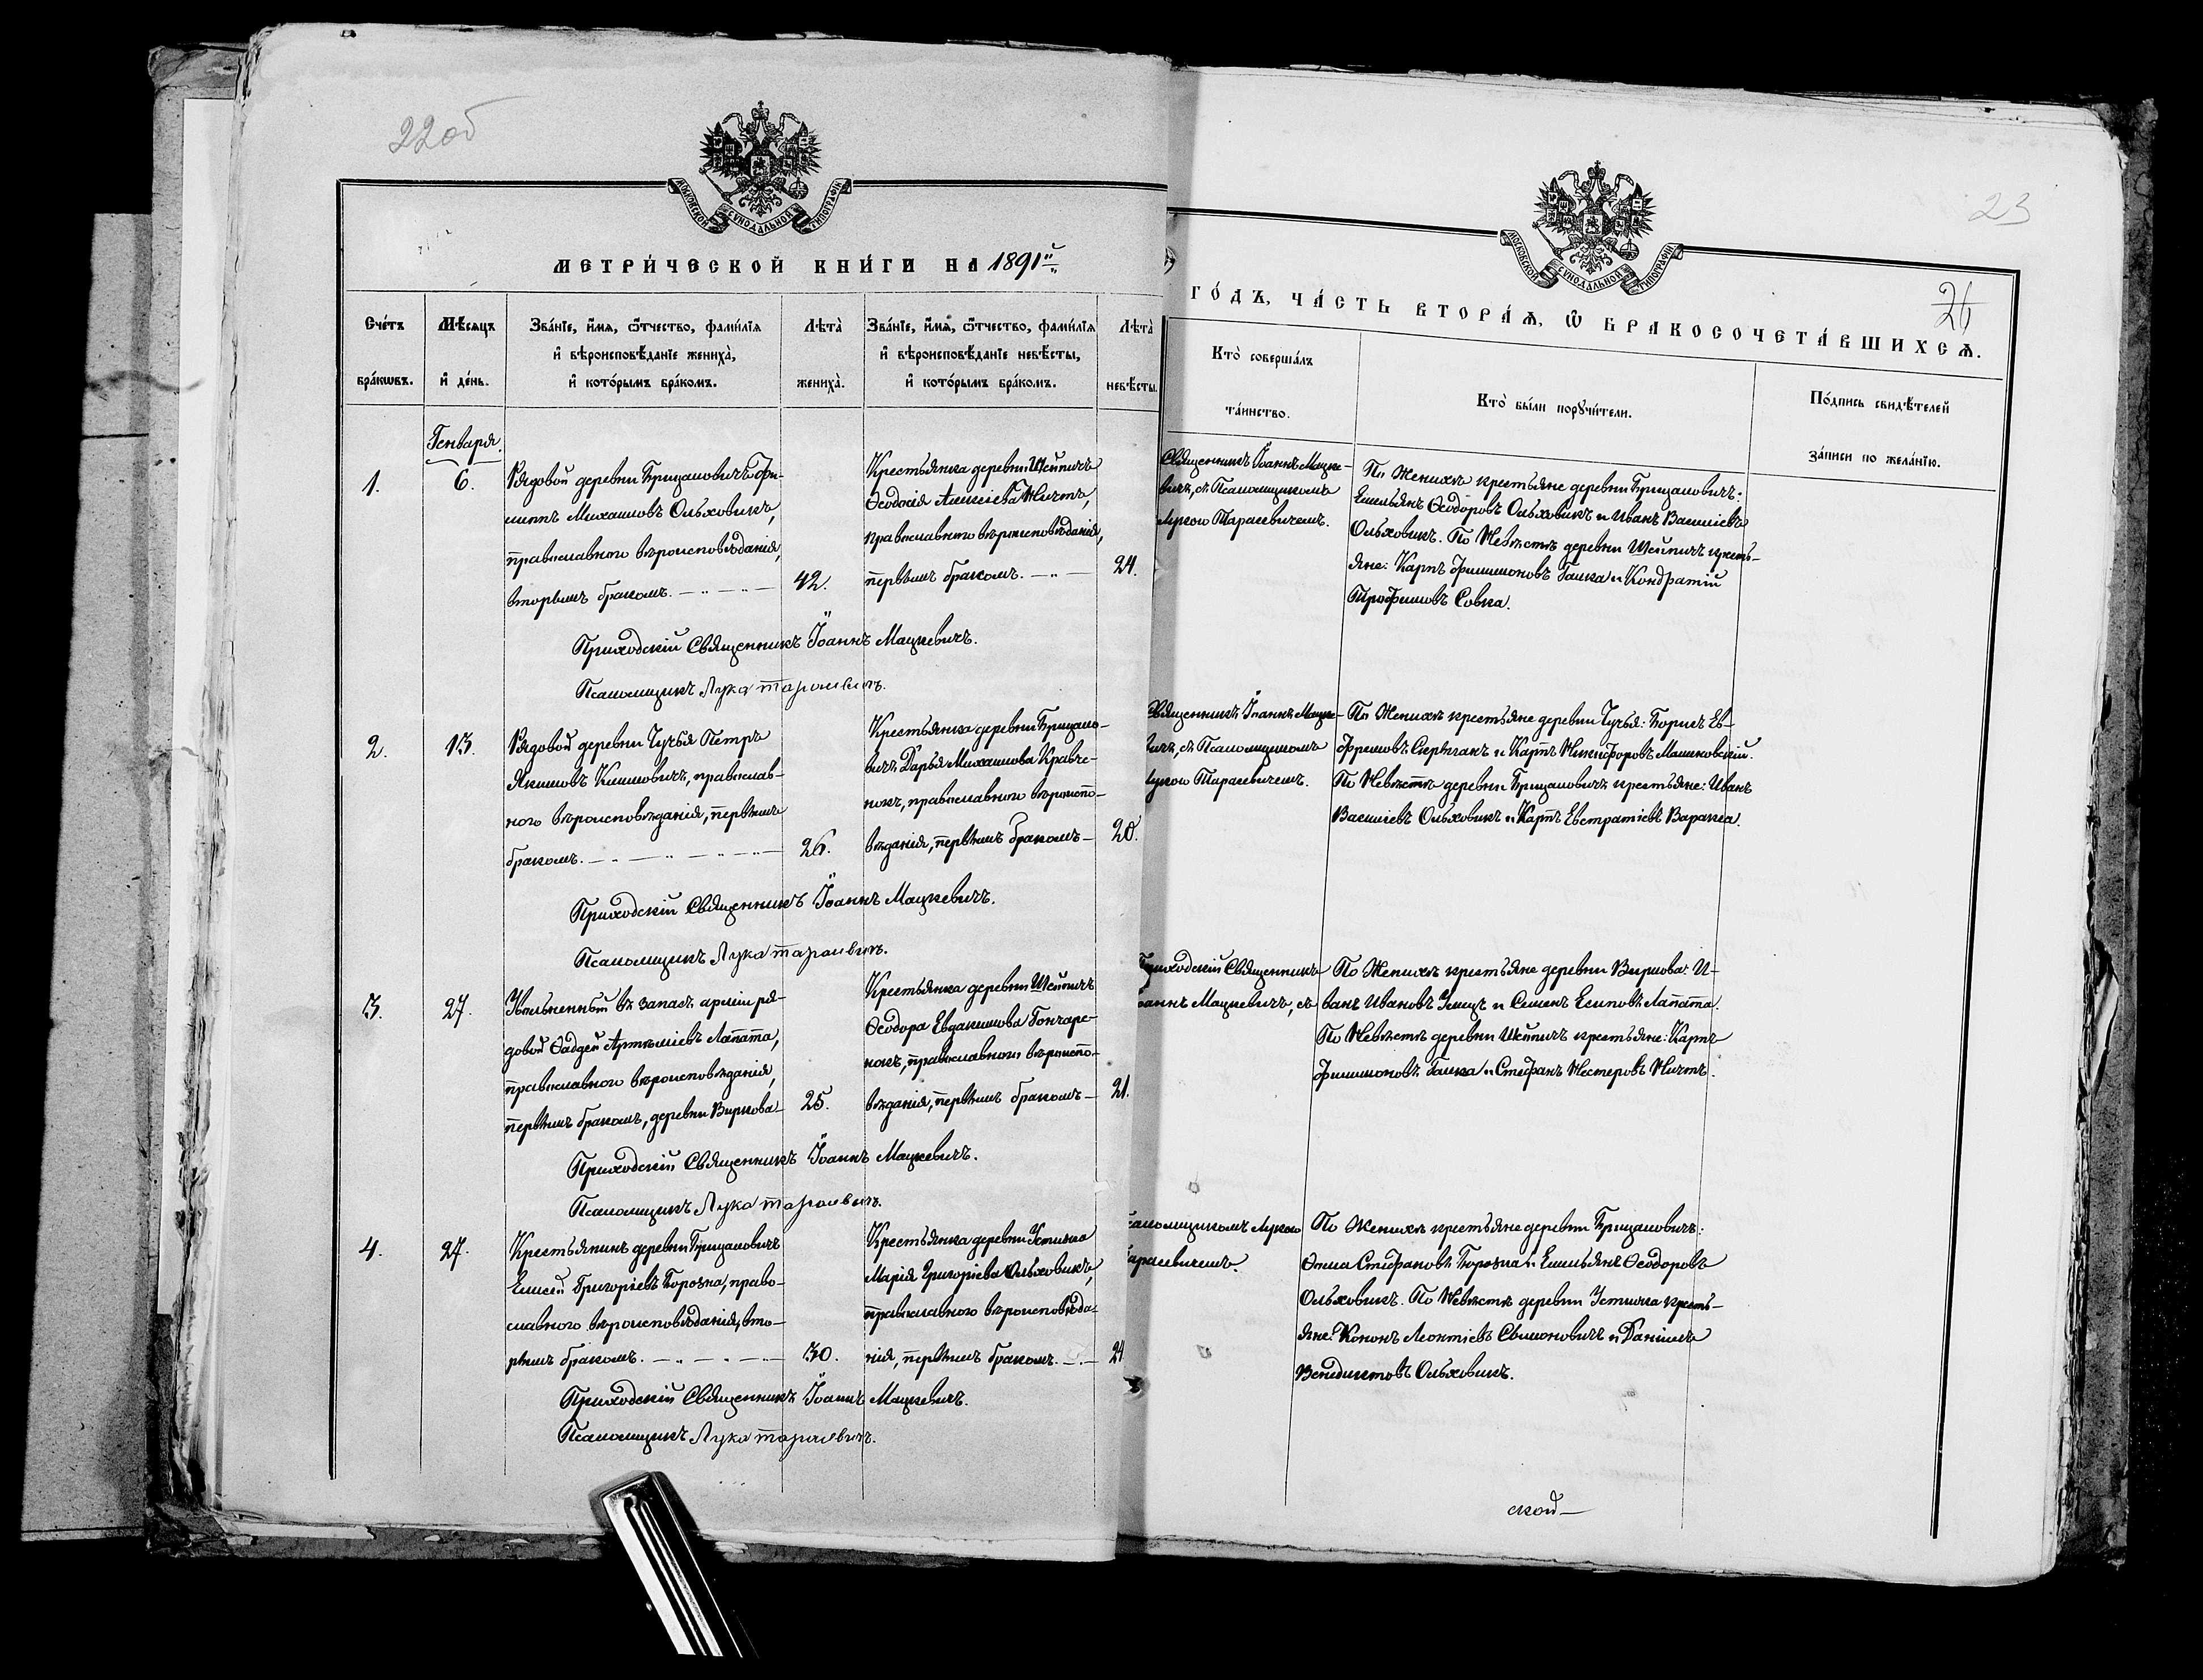 22 об
МОСКОВСКОЙ СѴНОДАЛЬНОЙ ТИПОГРАФІИ
МЕТРИ́ЧЕСКОЙ КНИ́ГИ НА 1891й
Сче́тъ бра́кѡвъ.
Мѣ́сѧцъ и҆ де́нь.
Зва́нїе, и҆́мѧ, ѻ҆́тчество, фами́лїѧ
и҆ вѣроисповѣ́данїе жениха̀,
и҆ кото́рымъ бра́комъ.
Лѣта̀ жениха̀.
Зва́нїе, и҆́мѧ, ѻ҆́тчество, фами́лїѧ
и҆ вѣроисповѣ́данїе невѣ́сты,
и҆ кото́рымъ бра́комъ.
Лѣта̀ невѣ́сты.
Генваря.
1.
6.
Рядовой деревни Брицаловичъ Фи-
липпъ Михаиловъ Ольховикъ,
православнаго вѣроисповѣданія,
вторымъ бракомъ.
42.
Крестьянка деревни Шейпичъ
Ѳеодосія Алексіева Ничтъ,
православнаго вѣроисповѣданія,
первымъ бракомъ.
24.
Приходскій Священникъ Іоаннъ Мацкевичъ.
Псаломщикъ Лука Тарасевичъ.
2.
13.
Рядовой деревни Чучья Петръ
Якимовъ Климовичъ, православ-
ного вѣроисповѣданія, первымъ
бракомъ.
26.
Крестьянка деревни Брицало-
вичъ Дарья Михаилова Кравче-
нокъ, православнаго вѣроиспо-
вѣданія, первымъ бракомъ
20.
Приходскій Священникъ Іоаннъ Мацкевичъ.
Псаломщикъ Лука Тарасевичъ.
3.
27.
Уволенный въ запасъ арміи ря-
довой Ѳадей Артемьевъ Лапата,
православнаго вѣроисповѣданія,
первымъ бракомъ, деревни Виркова
25.
Крестьянка деревни Шейпичъ
Ѳеодора Евдакимова Гончаре-
нокъ, православнаго вѣроиспо-
вѣданія, первымъ бракомъ
21.
Приходскій Священникъ Іоаннъ Мацкевичъ.
Псаломщикъ Лука Тарасевичъ.
4.
27.
Крестьянинъ деревни Брицаловичъ
Елисей Григоріевъ Борозна, право-
славнаго вѣроисповѣданія, вто-
рымъ бракомъ.
30.
Крестьянка деревни Устижа
Марія Григоріева Ольховикъ,
православнаго вѣроисповѣда-
нія, первымъ бракомъ.
21
Приходскій Священникъ Іоаннъ Мацкевичъ.
Псаломщикъ Лука Тарасевичъ.
23
26
МОСКОВСКОЙ СѴНОДАЛЬНОЙ ТИПОГРАФІИ
ГО́ДЪ, ЧА́СТЬ ВТОРА́Ѧ, Ѡ҆ БРАКОСОЧЕТА́ВШИХСѦ.
Кто̀ соверша́лъ та́инство.
Кто̀ бы́ли порꙋчи́тели.
По́дпись свидѣ́телей за́писи по жела́нїю.
Священникъ Іоаннъ Мацке-
вичъ, съ Псаломщикомъ
Лукою Тарасевичемъ.
По Женихѣ крестьяне деревни Брицаловичъ:
Емельянъ Ѳеодоровъ Ольховикъ и Иванъ Василіевъ
Ольховикъ. По Невѣстѣ деревни Шейпичъ кресть-
яне: Карпъ Филимоновъ Галка и Кондратій
Трофимовъ Совка.
Священникъ Іоаннъ Мацке-
вичъ, съ Псаломщикомъ
Лукою Тарасевичемъ.
По Женихѣ крестьяне деревни Чучья: Борисъ Ев-
фремовъ и Карпъ Никифоровъ Машковскій.
По Невѣстѣ деревни Брицаловичъ крестьяне: Иванъ
Василіевъ Ольховикъ и Карпъ Евстратіевъ Варакса.
Приходскій Священникъ
Іоаннъ Мацкевичъ, съ
По Женихѣ крестьяне деревни Виркова: И-
ванъ Ивановъ и Семенъ Есиповъ Лапата.
По Невѣстѣ деревни Шейпичъ крестьяне: Карпъ
Филимоновъ Галка и Стефанъ Нестеровъ Ничтъ.
Псаломщикомъ Лукою
Тарасевичемъ.
По Женихѣ крестьяне деревни Брицаловичъ:
Ѳома Стефановъ Борозна и Емельянъ Ѳеодоровъ
Ольховикъ. По Невѣстѣ деревни Устижа кресть-
яне: Кононъ Леонтіевъ Самоновичъ и Даніилъ
Венедиктовъ Ольховикъ.
ской